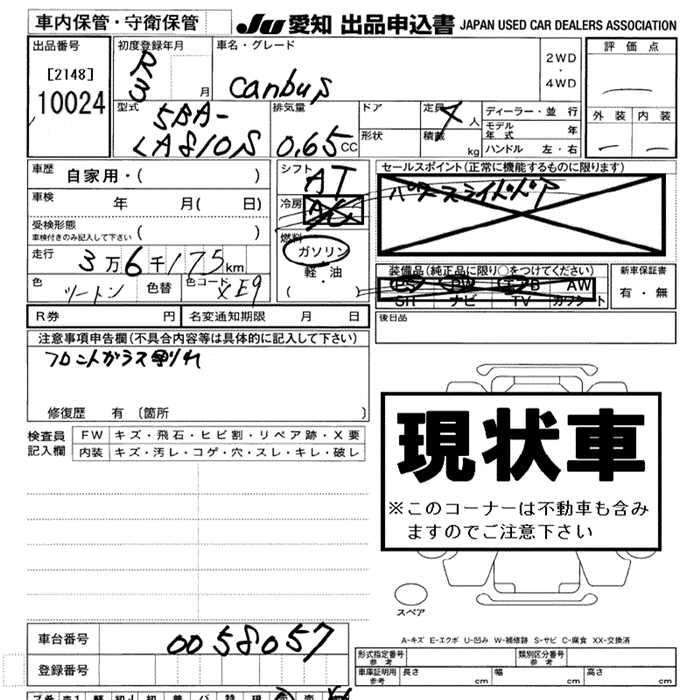 車内保管・守衛保管 JU 愛知 出品申込書 JAPAN USED CAR DEALERS ASSOCIATION
出品番号 [2148] 10024
初度登録年月 R3 月
車名・グレード canbus
2WD・4WD
評価点
外装 内装
型式 5BA-LA810S
排気量 0.65CC
ドア
形状
定員 4人
積載 kg
ディーラー・並行
モデル年式 年
ハンドル 左・右
車歴 自家用・( )
車検 年 月( 日)
受検形態 車検付きのみ記入して下さい ( )
走行 3万6千175km
色 ツートン 色替 色コード XE9
シフト AT
冷房 AC
燃料 ガソリン 軽・油 ( ・ )
セールスポイント(正常に機能するものに限ります)
パワースライドドア
装備品(純正品に限り○をつけてください)
PS PW エアB AW
SR ナビ TV カワシート
新車保証書 有・無
後日品
R券 円 名変通知期限 月 日
注意事項申告欄(不具合内容等は具体的に記入して下さい)
フロントガラス割れ
修復歴 有〔箇所 〕
検査員記入欄
FW キズ・飛石・ヒビ割・リペア跡・X要
内装 キズ・汚レ・コゲ・穴・スレ・キレ・破レ
現状車
※このコーナーは不動車も含みますのでご注意下さい
スペア
A-キズ E-エクボ U-凹み W-補修跡 S-サビ C-腐食 XX-交換済
車台番号 0058057
登録番号
形式指定番号 参考
類別区分番号 参考
車庫証明用 参考 長さ cm 幅 cm 高さ cm